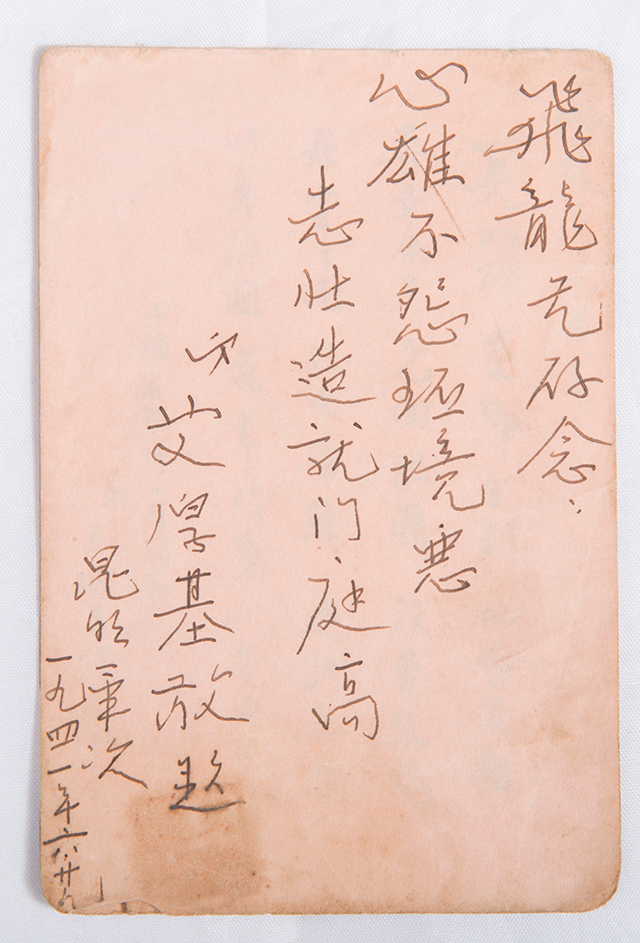 飛龍兄存念：
心雄不怨环境惡
志壮造就门庭高
艾厚基敬题
昆明軍次
一九四一年六、廿九